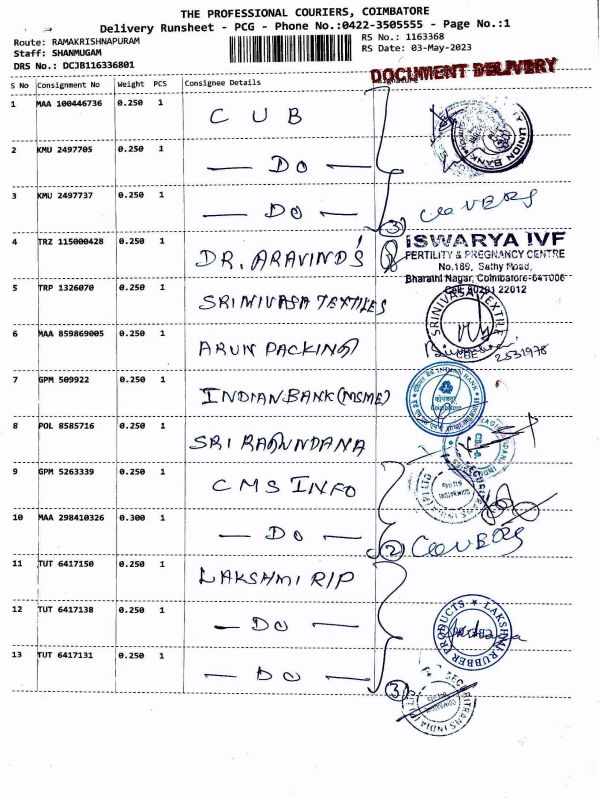 THE PROFESSIONAL COURIERS, COIMBATORE
Delivery Runsheet - PCG - Phone No.:0422-3505555 - Page No.:1
Route: RAMAKRISHNAPURAM
Staff: SHANMUGAM
DRS No.: DCJB116336801
RS No.: 1163368
RS Date: 03-May-2023
DOCUMENT DELIVERY
S No Consignment No Weight PCS Consignee Details Signature
1 MAA 100446736 0.250 1 CUB
UNION BANK
2 KMU 2497705 0.250 1 — DO —
3 KMU 2497737 0.250 1 — DO — 3
4 TRZ 115000428 0.250 1 DR. ARAVIND'S
ISWARYA IVF
FERTILITY & PREGNANCY CENTRE
No.189, Sathy Road,
Bharathi Nagar, Coimbatore-641006
22012
5 TRP 1326070 0.250 1 SRINIVASA TEXTILES
SRINIVASA TEXTILE
6 MAA 859869005 0.250 1 ARUN PACKING
2531978
7 GPM 509922 0.250 1 INDIAN BANK (MSME)
INDIAN BANK
Coimbatore
8 POL 8585716 0.250 1 SRI RAGUNDANA
9 GPM 5263339 0.250 1 CMS INFO
10 MAA 298410326 0.300 1 — DO — 2
11 TUT 6417150 0.250 1 LAKSHMI RIP
12 TUT 6417138 0.250 1 — DO —
LAKSHMI RUBBER PRODUCTS
13 TUT 6417131 0.250 1 — DO — 3